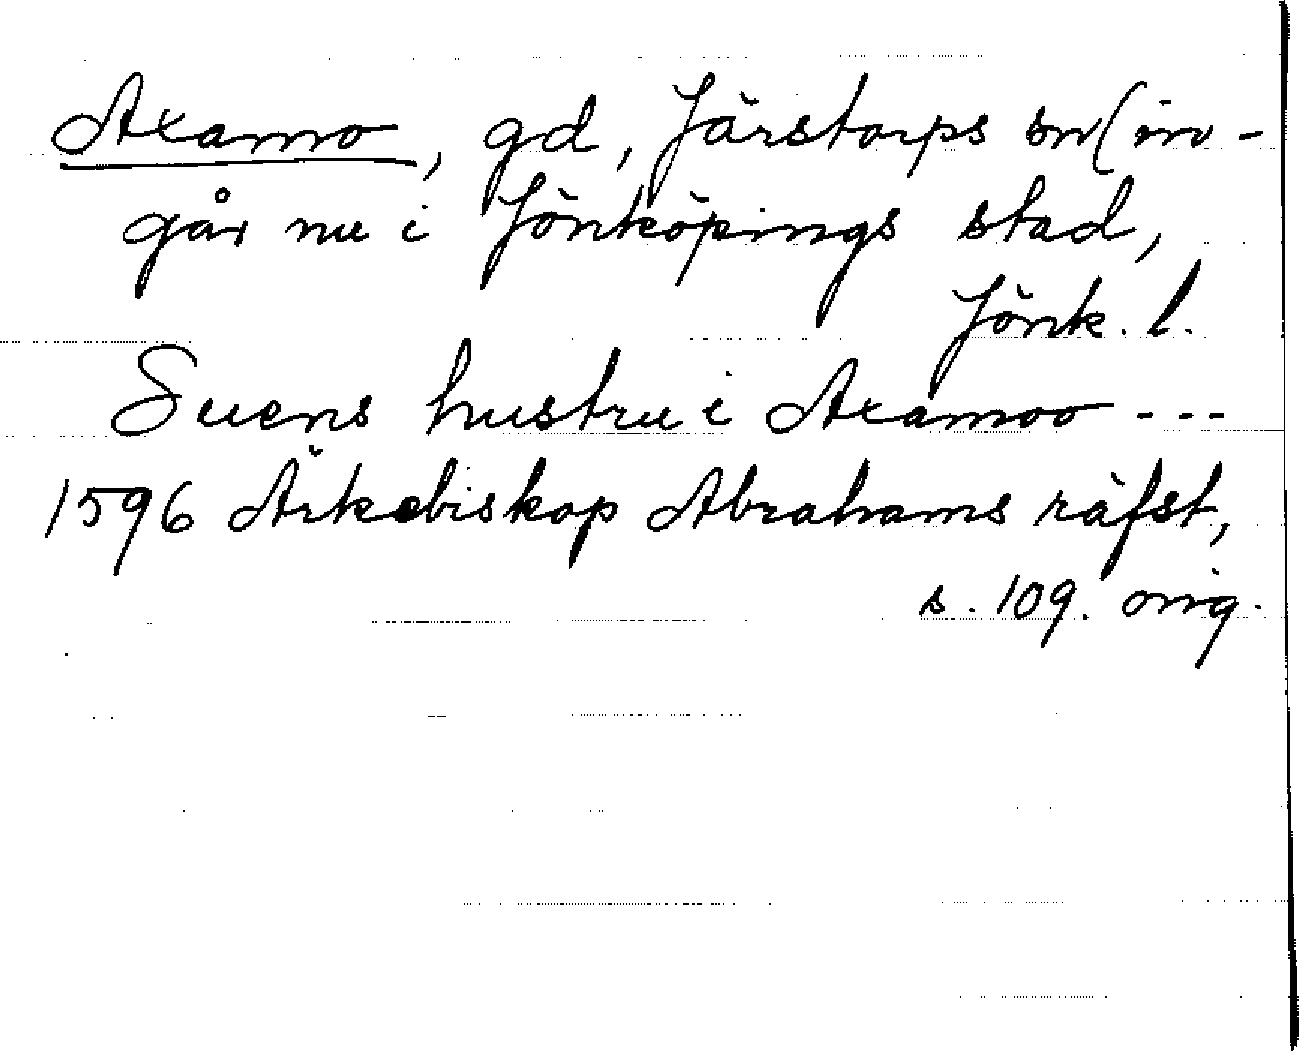 Axamo, gd, Järstorps sn (in-
går nu i Jönköpings stad,
Jönk. l.
Suens hustru i Axamoo ---
1596 Ärkebiskop Abrahams räfst,
s. 109. orig.